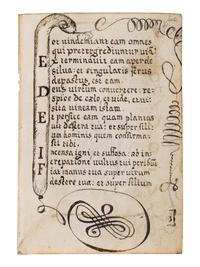 et uindemiant eam omnes
qui pretergrediuntur uiam
E xterminauit eam aper de
silua: et singularis ferus
depastus, est eam.
D eus uirtum conuertere: re-
spice de celo, et uide, et ui-
sita uineam istam.
E t perfice eam quam planta
uit destera tua: et super filiu-
um hominis quem confirma-
sti tibi.
I ncensa igni et suffosa: ab in
crepatione uultus tui peribu
F iat manus tua super uirum
destere tua: et super filium